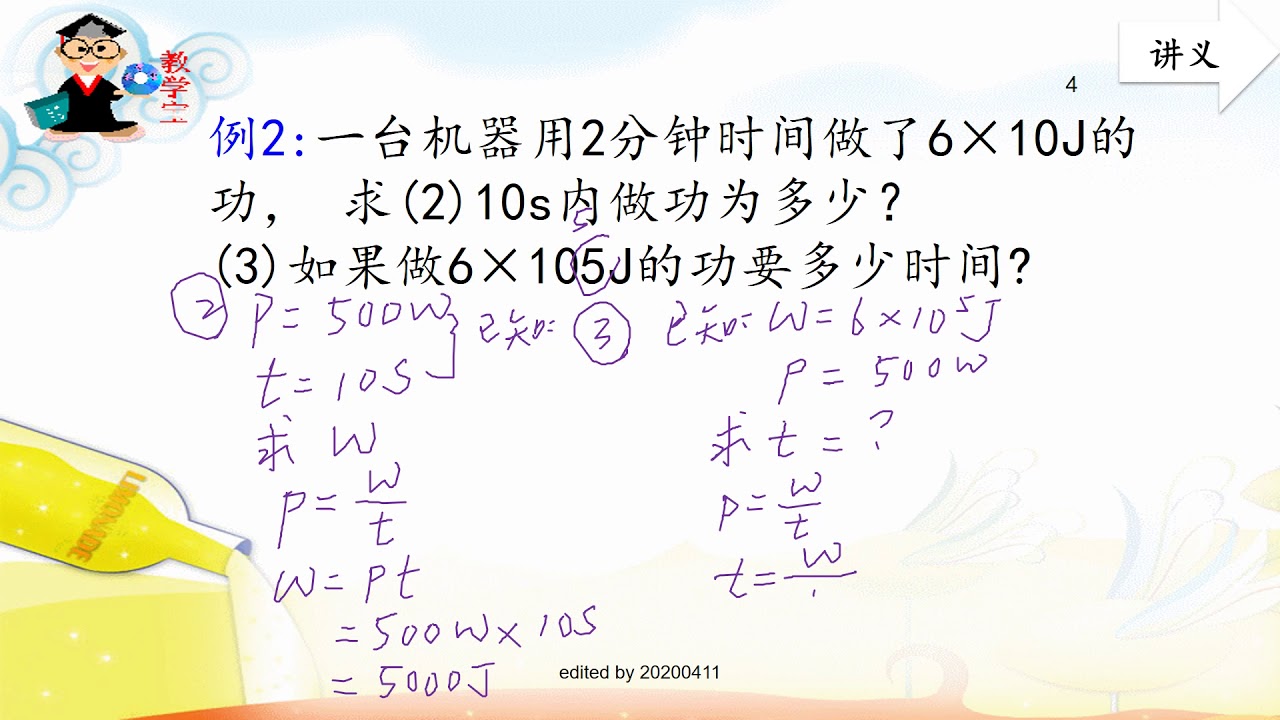 教学室
讲义
4
例2:一台机器用2分钟时间做了6×10J的
功， 求(2)10s内做功为多少?
(3)如果做6×105J的功要多少时间?
5
② P=500W
t=10S
已知:
求 W
P=W/t
W=Pt
=500W×10S
=5000J
③ 已知: W=6×10⁵J
P=500W
求 t=?
P=W/t
t=W/
LIMONADE
edited by 20200411